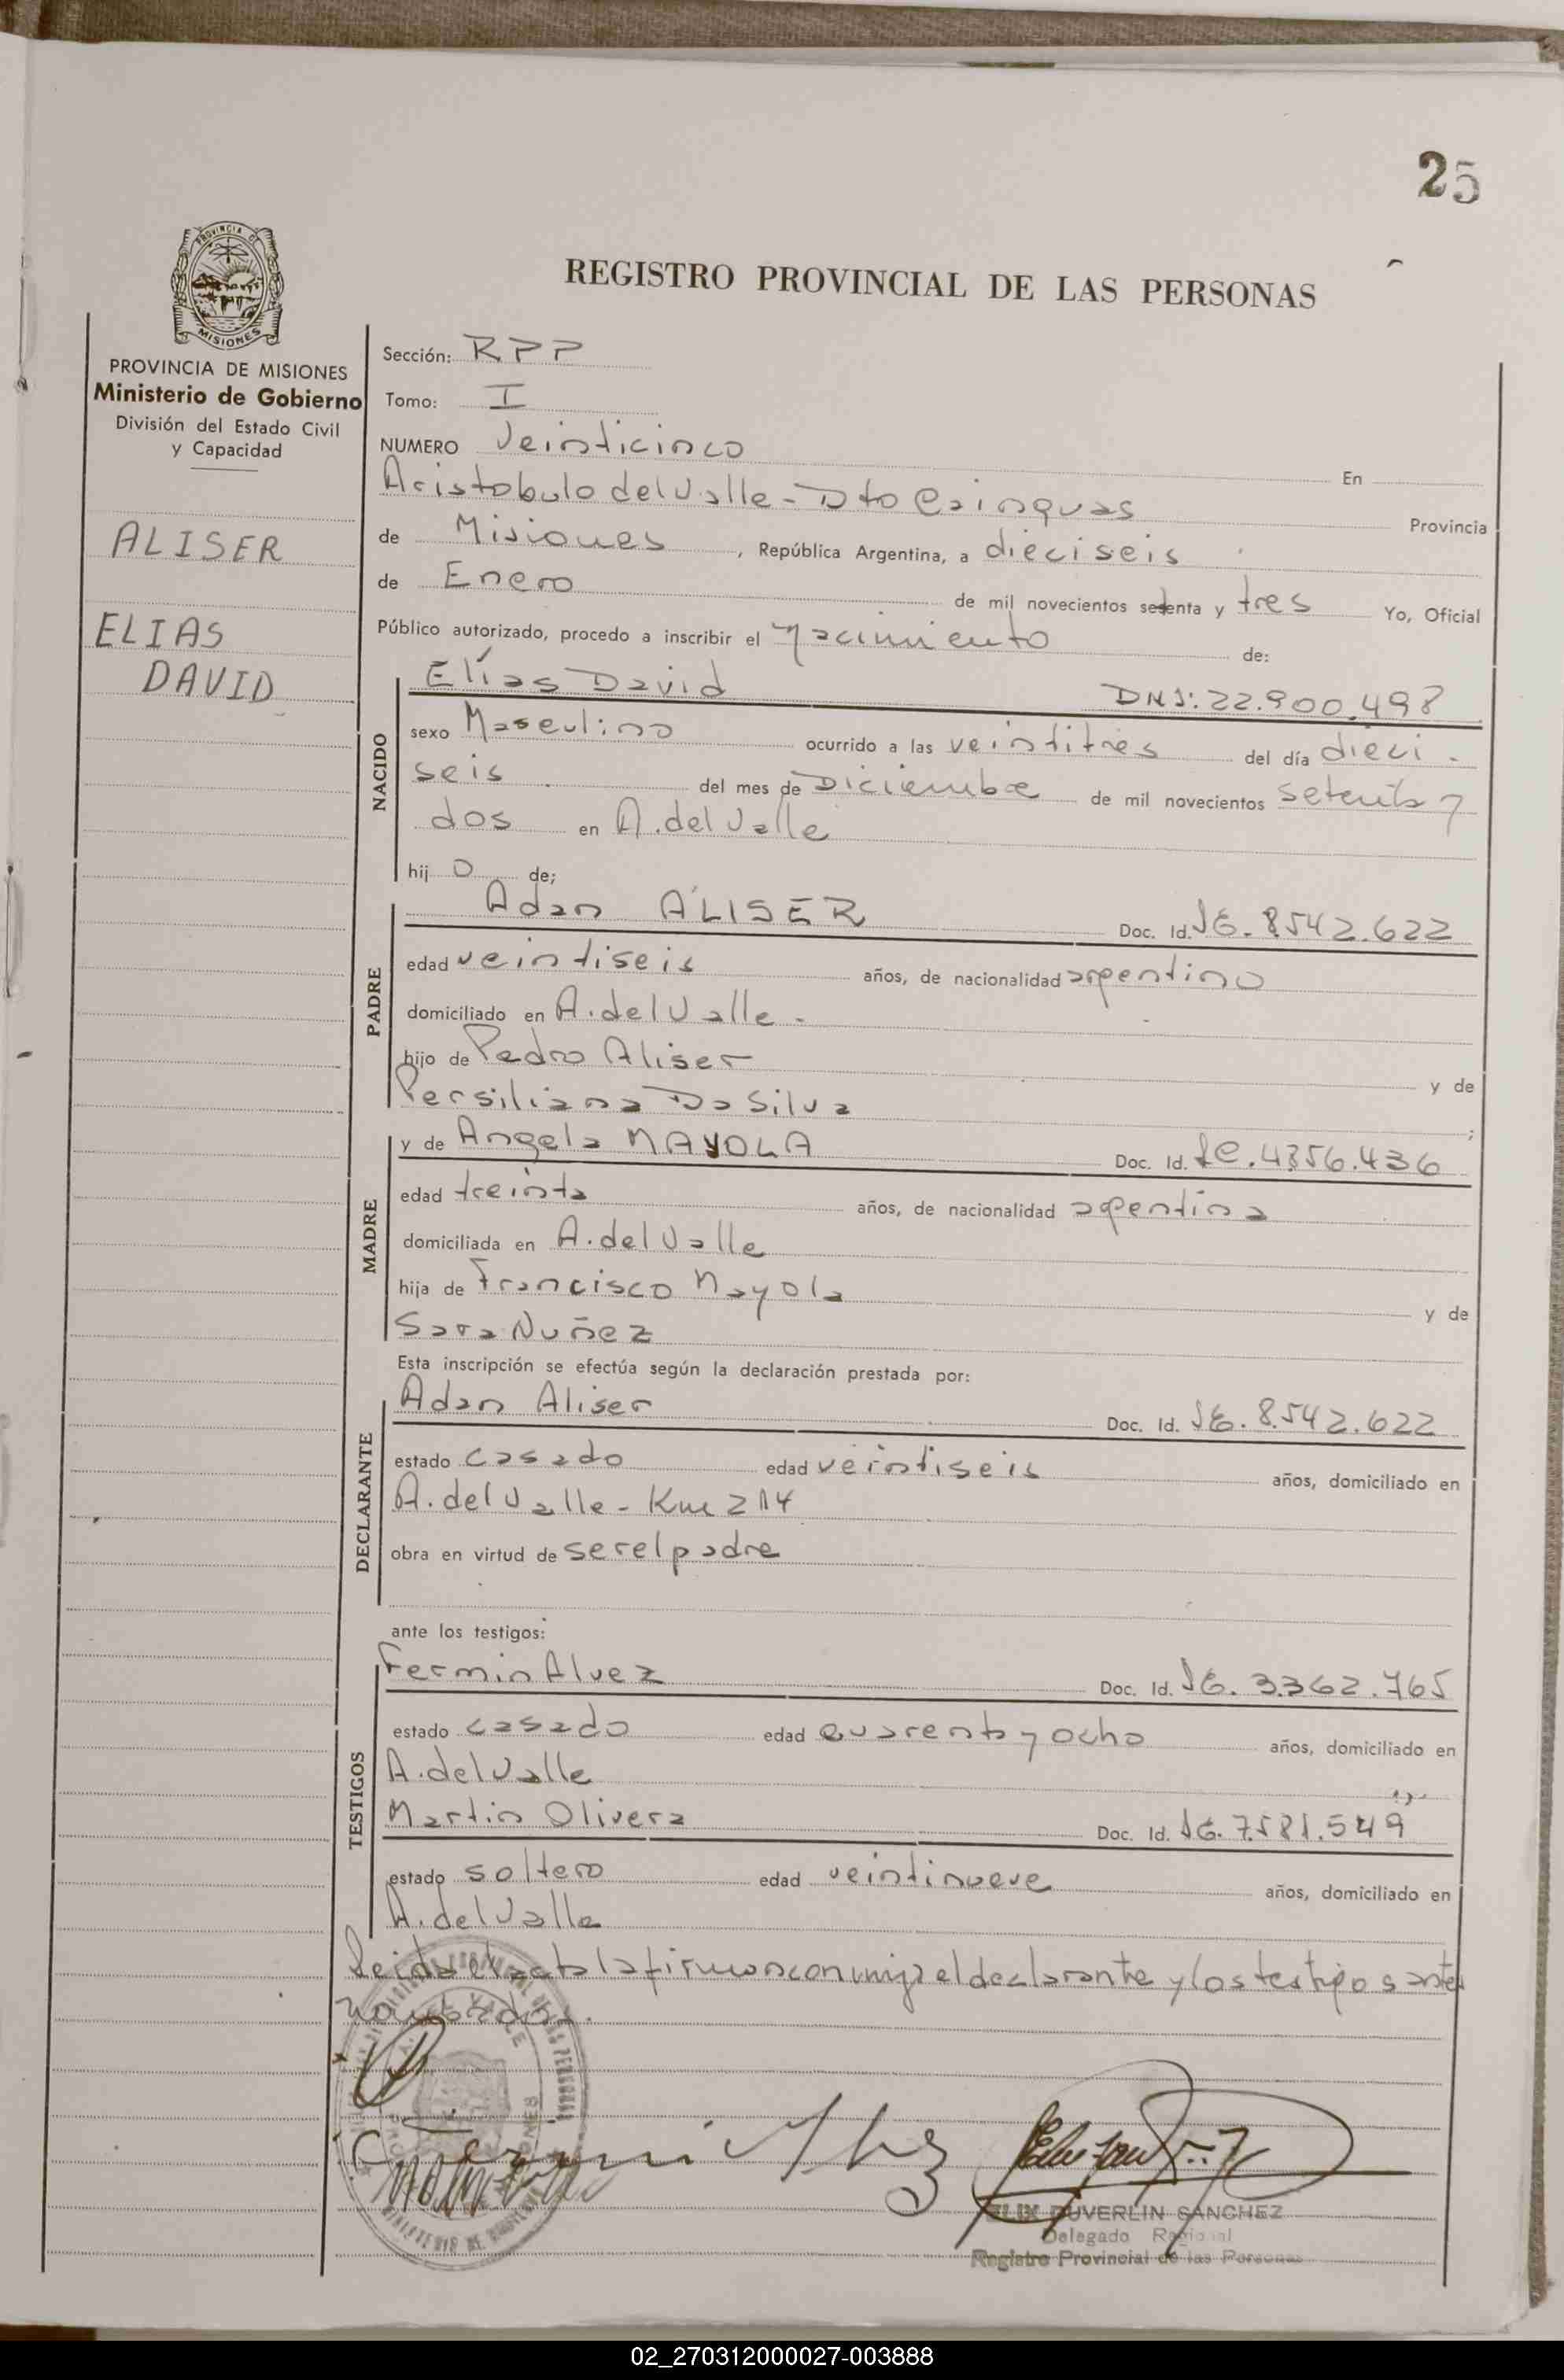 25
REGISTRO PROVINCIAL DE LAS PERSONAS
PROVINCIA DE MISIONES
Ministerio de Gobierno
División del Estado Civil
y Capacidad
ALISER
ELIAS
DAVID
Sección: RPP
Tomo: I
NUMERO Veinticinco En
Aristobulo del Valle - Dto Cainguas Provincia
de Misiones, República Argentina, a dieciseis
de Enero de mil novecientos setenta y tres Yo, Oficial
Público autorizado, procedo a inscribir el Nacimiento de:
NACIDO
Elías David DNI: 22.900.498
sexo Masculino ocurrido a las veintitrés del día dieci-
seis del mes de Diciembre de mil novecientos setenta y
dos en A. del Valle
hij o de;
PADRE
Adan ALISER Doc. Id. LE. 8.542.622
edad veintiseis años, de nacionalidad argentino
domiciliado en A. del Valle -
hijo de Pedro Aliser y de
Persiliana Da Silva ;
MADRE
y de Angela MAYOLA Doc. Id. LC. 4.356.436
edad treinta años, de nacionalidad argentina
domiciliada en A. del Valle
hija de Francisco Mayola y de
Sara Nuñez
Esta inscripción se efectúa según la declaración prestada por:
DECLARANTE
Adan Aliser Doc. Id. LE. 8.542.622
estado casado edad veintiseis años, domiciliado en
A. del Valle - Km 214
obra en virtud de ser el padre
ante los testigos:
TESTIGOS
Fermin Alvez Doc. Id. LE. 3.362.765
estado casado edad cuarenta y ocho años, domiciliado en
A. del Valle
Martin Olivera Doc. Id. LE. 7.581.549
estado soltero edad veintinueve años, domiciliado en
A. del Valle
Leida el acta la firman conmigo el declarante y los testigos antes
nombrados.
Fermin Alvez
FELIX DUVERLIN SANCHEZ
Delegado Regional
Registro Provincial de las Personas
02_270312000027-003888